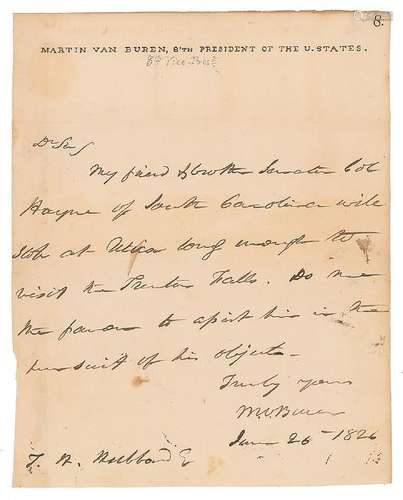 8.
MARTIN VAN BUREN, 8'TH PRESIDENT OF THE U. STATES.
8th Vice-Prest
Dr Sir
My friend & brother Senator Col
Hayne of South Carolina will
stop at Utica long enough to
visit the Trenton Falls. Do me
the favour to assist him in the
pursuit of his object.
Truly yours
M V Buren
June 26 1826
T. H. Hubbard E